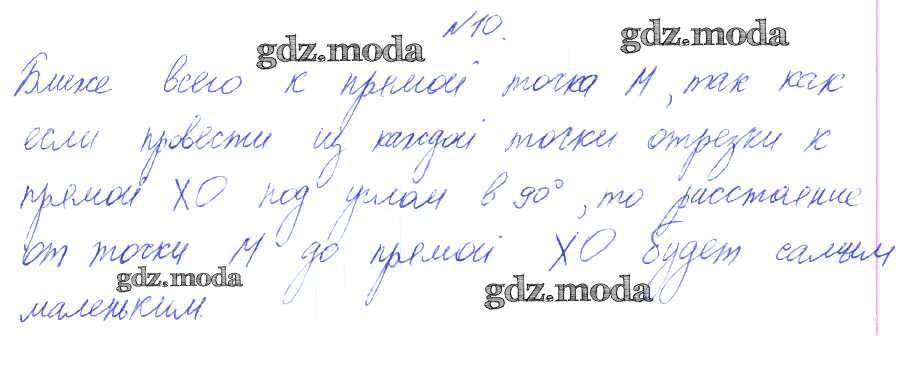 №10.
gdz.moda gdz.moda
Ближе всего к прямой точка М, так как
если провести из каждой точки отрезки к
прямой ХО под углом в 90°, то расстояние
от точки М до прямой ХО будет самым
gdz.moda gdz.moda
маленьким.